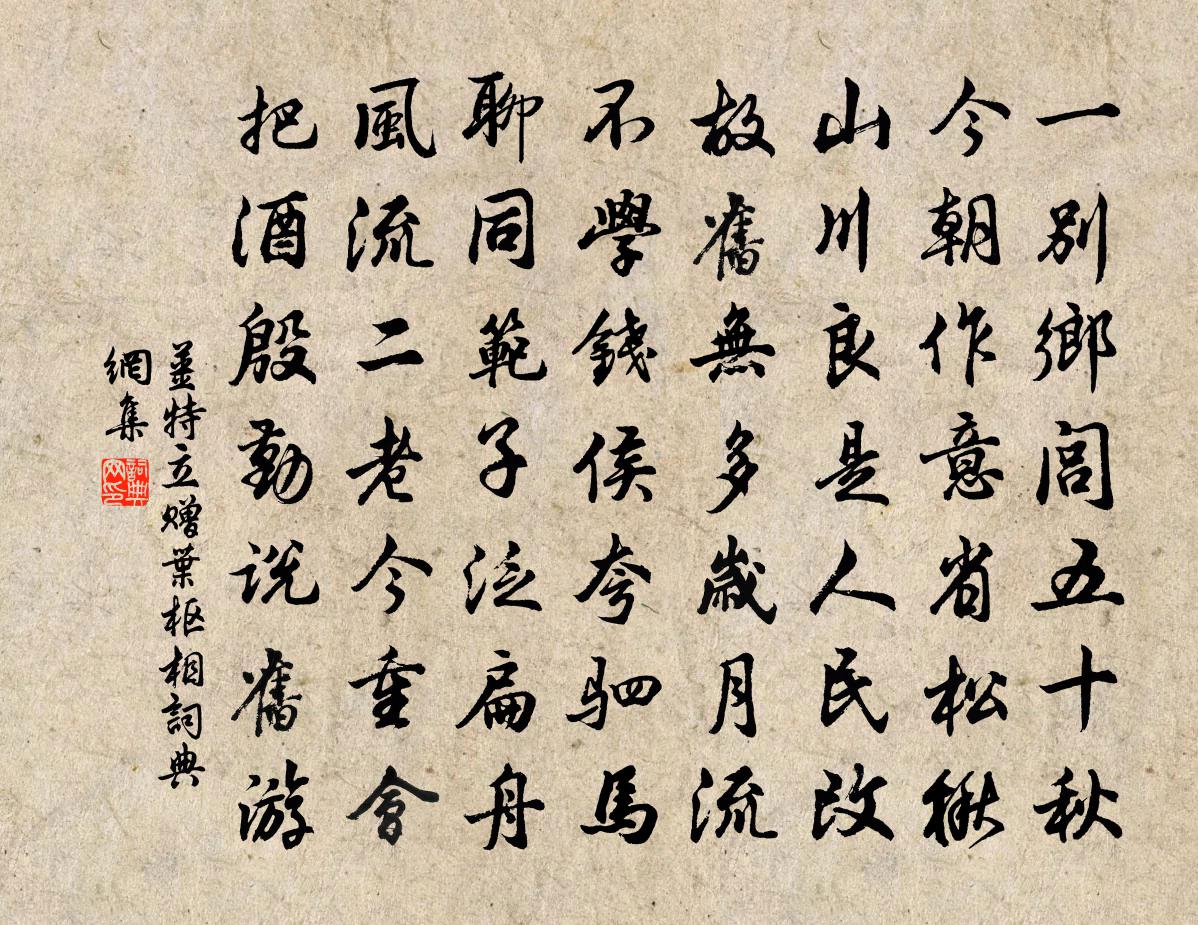 一別鄉閭五十秋
今朝作意省松楸
山川良是人民改
故舊無多歲月流
不學錢侯夸駟馬
聊同範子泛扁舟
風流二老今重會
把酒殷勤說舊游
姜特立贈葉樞相詞典
網集
詞典
网印